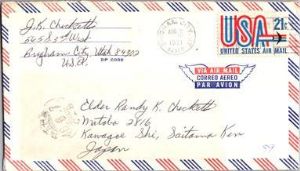 J.R. Checketts
565 S 3rd West
Brigham City, Utah 84302
U.S.A.
DP ZONE
USA 21c
UNITED STATES AIR MAIL
VIA AIR MAIL
CORREO AEREO
PAR AVION
Elder Randy K. Checketts
Matoba 2816
Kawagoe Shi, Saitama Ken
Japan